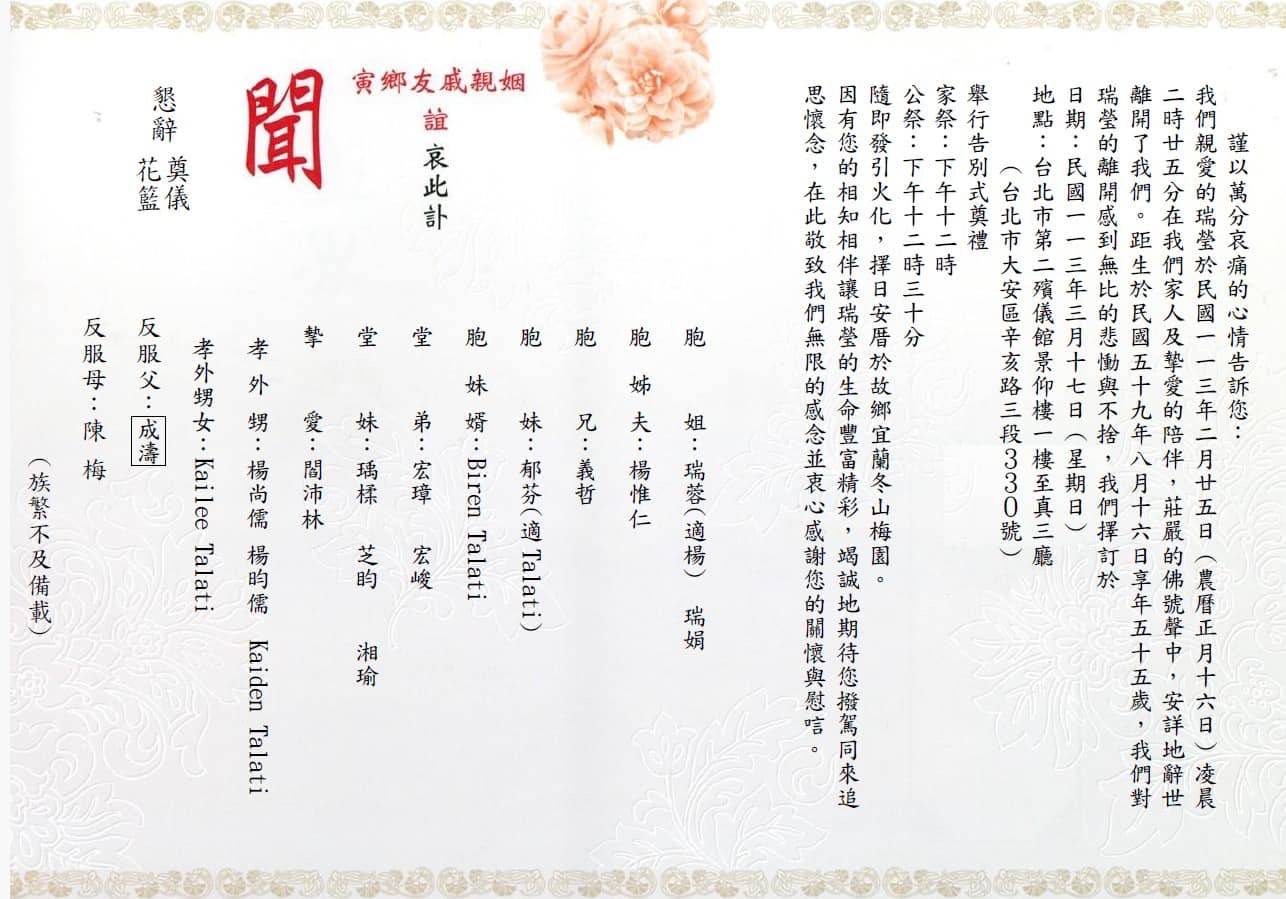 謹以萬分哀痛的心情告訴您：
我們親愛的瑞瑩於民國一一三年二月廿五日（農曆正月十六日）凌晨
二時廿五分在我們家人及摯愛的陪伴，莊嚴的佛號聲中，安詳地辭世
離開了我們。距生於民國五十九年八月十六日享年五十五歲，我們對
瑞瑩的離開感到無比的悲慟與不捨，我們擇訂於
日期：民國一一三年三月十七日（星期日）
地點：台北市第二殯儀館景仰樓一樓至真三廳
（台北市大安區辛亥路三段330號）
舉行告別式奠禮
家祭：下午十二時
公祭：下午十二時三十分
隨即發引火化，擇日安厝於故鄉宜蘭冬山梅園。
因有您的相知相伴讓瑞瑩的生命豐富精彩，竭誠地期待您撥駕同來追
思懷念，在此敬致我們無限的感念並衷心感謝您的關懷與慰唁。
胞姐：瑞蓉(適楊) 瑞娟
胞姊夫：楊惟仁
胞兄：義哲
胞妹：郁芬(適Talati)
胞妹婿：Biren Talati
堂弟：宏璋 宏峻
堂妹：瑀楺 芝昀 湘瑜
摯愛：閻沛林
孝外甥：楊尚儒 楊昀儒 Kaiden Talati
孝外甥女：Kailee Talati
反服父：成濤
反服母：陳梅
（族繁不及備載）
寅鄉友戚親姻
誼
哀此訃
聞
懇辭
奠儀
花籃